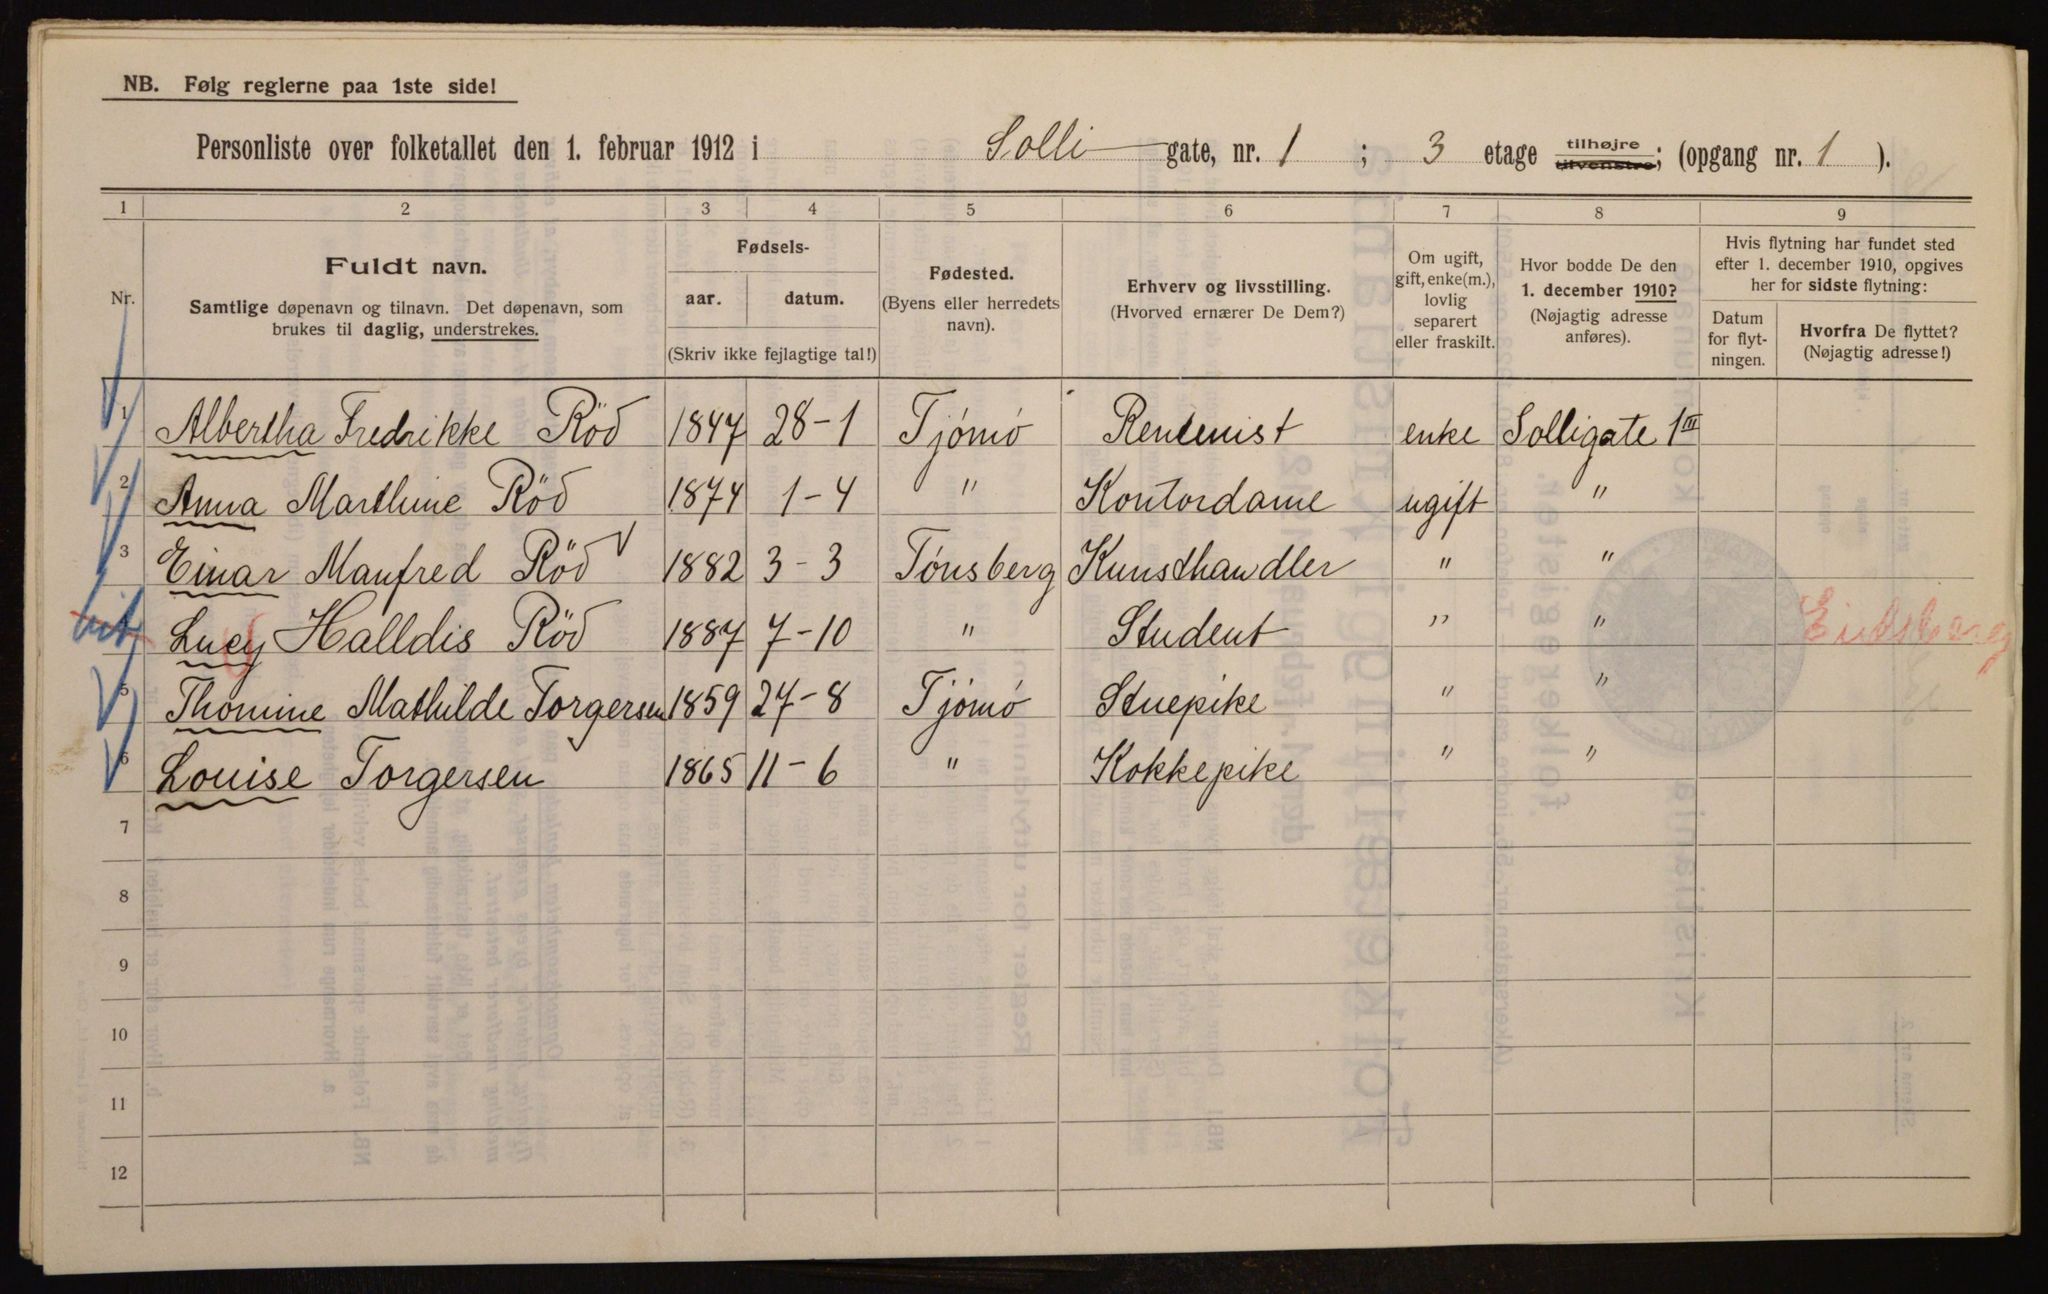 NB. Følg reglerne paa 1ste side!
Personliste over folketallet den 1. februar 1912 i Solli gate, nr. 1 ; 3 etage tilhøjre tilvenstre; (opgang nr. 1 ).
1 2 3 4 5 6 7 8 9
Nr.
Fuldt navn.
Samtlige døpenavn og tilnavn. Det døpenavn, som
brukes til daglig, understrekes.
Fødsels-
aar. datum.
(Skriv ikke fejlagtige tal!)
Fødested.
(Byens eller herredets
navn).
Erhverv og livsstilling.
(Hvorved ernærer De Dem?)
Om ugift,
gift, enke(m.),
lovlig
separert
eller fraskilt.
Hvor bodde De den
1. december 1910?
(Nøjagtig adresse
anføres).
Hvis flytning har fundet sted
efter 1. december 1910, opgives
her for sidste flytning:
Datum
for flyt-
ningen.
Hvorfra De flyttet?
(Nøjagtig adresse!)
1 Albertha Fredrikke Röd 1847 28-1 Tjømø Rentenist enke Solligate 1 III
2 Anna Marthine Röd 1874 1-4 " Kontordame ugift "
3 Einar Manfred Röd 1882 3-3 Tønsberg Kunsthandler " "
Lucy Halldis Röd 1887 7-10 " Student " "
5 Thomine Mathilde Torgersen 1859 27-8 Tjømø Stuepike " "
6 Louise Torgersen 1865 11-6 " Kokkepike " "
7
8
9
10
11
12